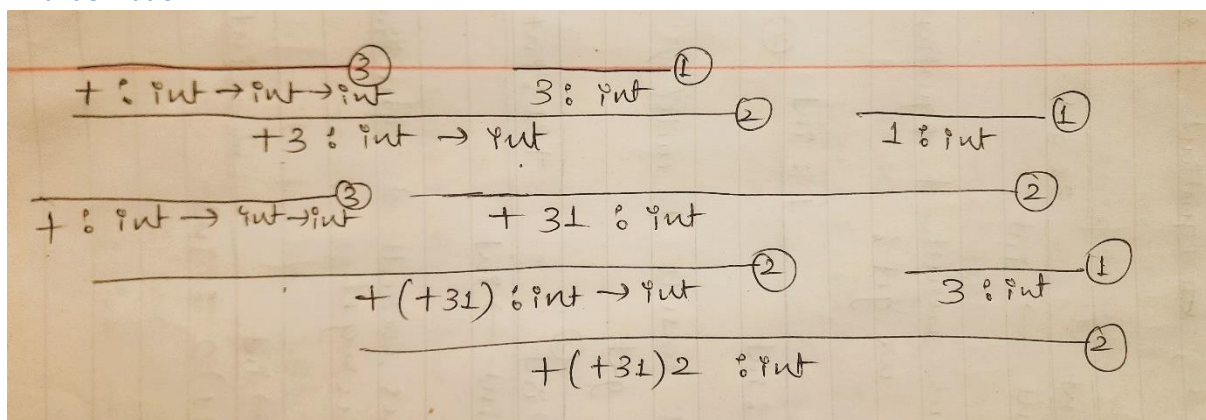 ③
+ : int → int → int
①
3 : int
②
+3 : int → int
①
1 : int
③
+ : int → int → int
②
+ 31 : int
②
+(+31) : int → int
①
3 : int
②
+(+31)2 : int